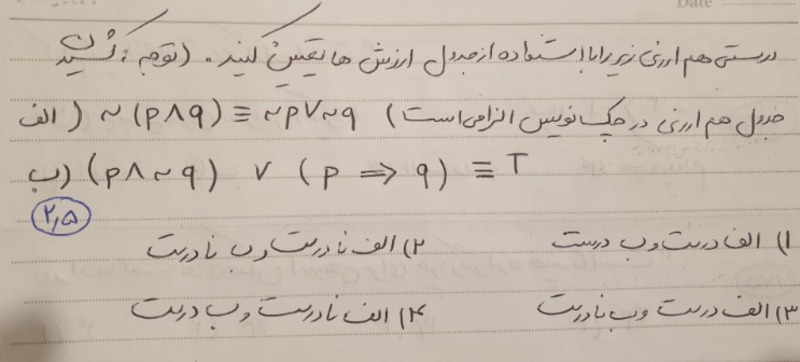 Date
درستی هم ارزی زیر را با استفاده از جدول ارزش ها تعیین کنید. (توجه : کشیدن
جدول هم ارزی در چک نویس الزامی است) الف) ~(p∧q) ≡ ~p∨~q
ب) (p∧~q) ∨ (p ⇒ q) ≡ T
۲,۵
۱) الف درست و ب درست ۲) الف نادرست و ب نادرست
۳) الف درست و ب نادرست ۴) الف نادرست و ب درست